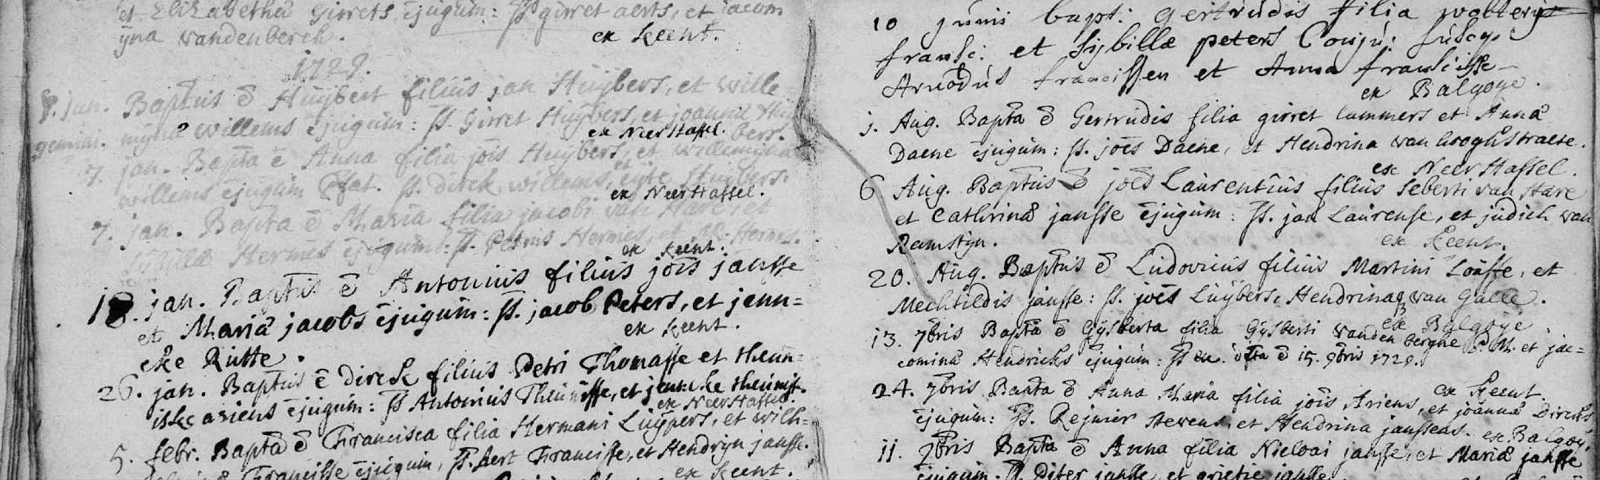 et Elizabetha Girrets, ejugum: SS girret aerts, et jacom
ijna vandenberch.
ex keent.
1729.
8. jan. Baptus ē Huijbert filius jan Huijbers, et wille=
gemini. mijnā willems ējugum: SS. Girret Huijbers, et joanna Huij
bers.
ex Neerhassel.
7. jan. Bapta ē Anna filia jois Huijbers, et willemijna
willems ējugum SS. direk willems, Huijbers.
ex Neerhassel.
7. jan. Bapta ē Maria filia jacobi van Hare, et
Sibillæ Hermes ējugum: SS. Petrus Hermes, et Hermes.
ex keent.
18. jan. Baptus ē Antonius filius jois jansse
et Mariā jacobs ējugum: SS. jacob Peters, et jenn=
eke Rutte.
ex keent.
26. jan. Baptus ē direk filius Petri Thomasse et theun=
iske ariens ējugum: SS Antonius Theunisse, et jenneke theuniss.
ex Neerhassel.
5. febr. Bapta ē Francisca filia Hermani Luijpers, et wilh=
Francisse ējugum, SS. Aert Francisse, et Hendryn jansse.
ex keent.
10 junii bapt: Gertrudis filia wolterij
fransc: et Sijbillæ peters Conju: susce.
Arnodus francissen et Anna francisse
ex Balgoye.
j. Aug. Bapta ē Gertrudis filia girret lammers et Annā
Daene ējugum: SS. joēs Daene, et Hendrina van hooghstraete.
ex Neerhassel.
6 Aug. Baptus ē joēs Laurentius filius seberti van Hare
et Cathrinā jansse ējugum: SS. jan Laurense, et judich van
Ramstijn.
ex keent.
20. Aug. Baptus ē Ludovicus filius Martini Loasse, et
Mechtildis jansse: SS. joēs Luijbers, Hendrina van Galle.
ex Balgoije.
13. 7bris Bapta ē Gijsberta filia Gijsberti vanden berghe et jac=
comina Hendricks ējugum: SS ē 15. 9bris 1729.
ex keent.
24. 7bris Bapta ē Anna Maria filia jois Ariens, et joannā Direks
ējugum: SS. Rejnier stevens, et Hendrina janssens. ex Balgoy
11. 9bris Bapta ē Anna filia Nicloai jansse, et Mariā jansse
ējugum: SS. Piter jansse, et grietie jansse